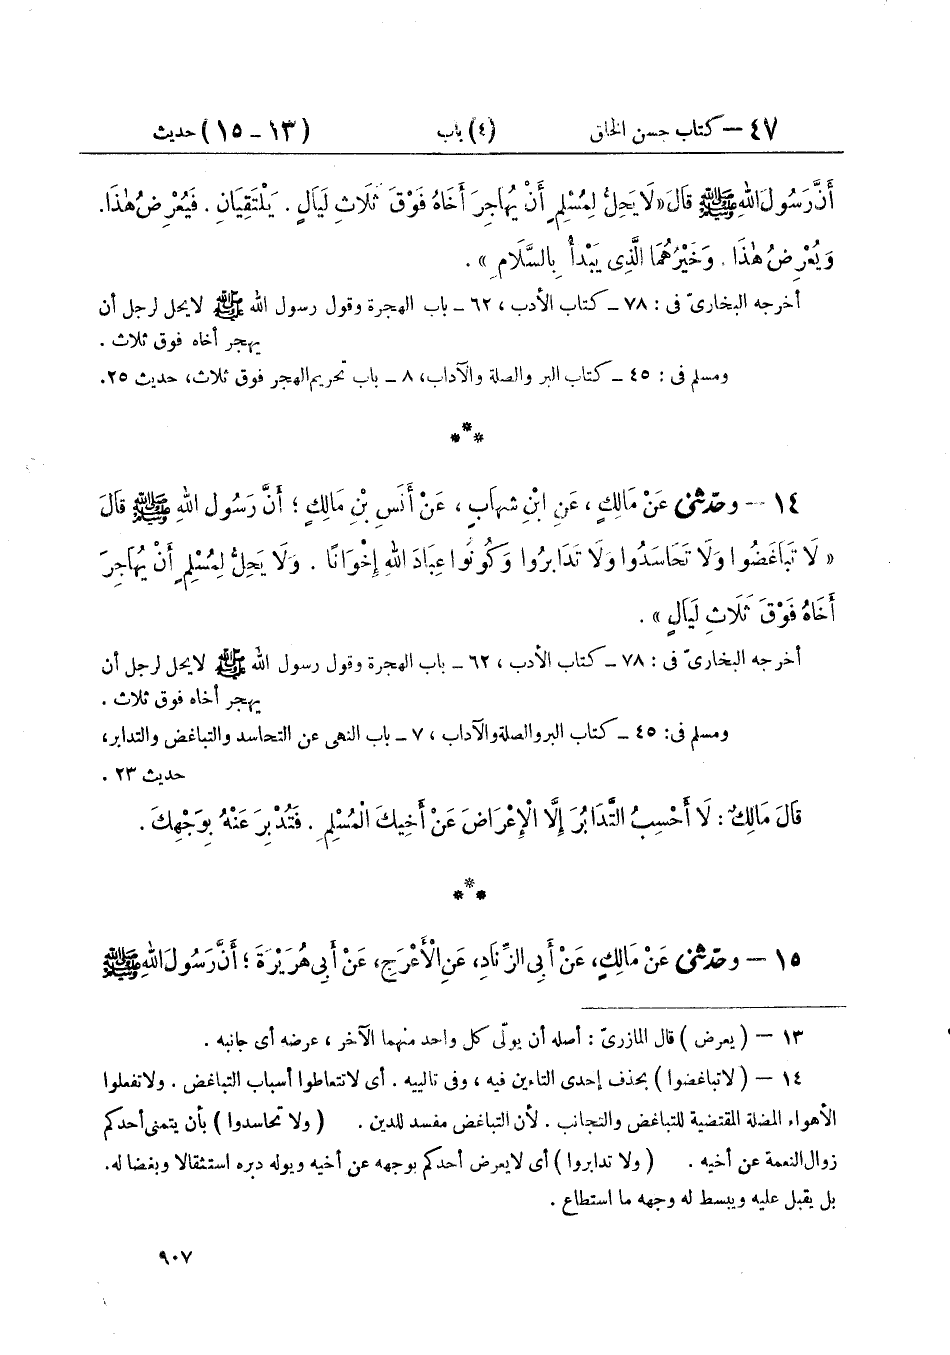 ٤٧ – كتاب حسن الخلق (٤) باب (١٣ – ١٥) حديث
أَنَّ رَسُولَ اللهِ ﷺ قَالَ «لَا يَحِلُّ لِمُسْلِمٍ أَنْ يُهَاجِرَ أَخَاهُ فَوْقَ ثَلَاثِ لَيَالٍ . يَلْتَقِيَانِ . فَيُعْرِضُ هٰذَا .
وَيُعْرِضُ هٰذَا . وَخَيْرُهُمَا الَّذِى يَبْدَأُ بِالسَّلَامِ » .
أخرجه البخارىّ فى : ٧٨ ـ كتاب الأدب ، ٦٢ ـ باب الهجرة وقول رسول الله ﷺ لايحل لرجل أن
يهجر أخاه فوق ثلاث .
ومسلم فى : ٤٥ ـ كتاب البر والصلة والآداب، ٨ ـ باب تحريم الهجر فوق ثلاث، حديث ٢٥.
***
١٤ – وحدّثنى عَنْ مَالِكٍ ، عَنِ ابْنِ شِهَابٍ ، عَنْ أَنَسِ بْنِ مَالِكٍ ؛ أَنَّ رَسُولَ اللهِ ﷺ قَالَ
« لَا تَبَاغَضُوا وَلَا تَحَاسَدُوا وَلَا تَدَابَرُوا وَكُونُوا عِبَادَ اللهِ إِخْوَانًا . وَلَا يَحِلُّ لِمُسْلِمٍ أَنْ يُهَاجِرَ
أَخَاهُ فَوْقَ ثَلَاثِ لَيَالٍ » .
أخرجه البخارىّ فى : ٧٨ ـ كتاب الأدب ، ٦٢ ـ باب الهجرة وقول رسول الله ﷺ لايحل لرجل أن
يهجر أخاه فوق ثلاث .
ومسلم فى: ٤٥ ـ كتاب البر والصلة والآداب ، ٧ ـ باب النهى عن التحاسد والتباغض والتدابر،
حديث ٢٣ .
قَالَ مَالِكٌ : لَا أَحْسِبُ التَّدَابُرَ إِلَّا الْإِعْرَاضَ عَنْ أَخِيكَ الْمُسْلِمِ . فَتُدْبِرَ عَنْهُ بِوَجْهِكَ .
***
١٥ – وحدّثنى عَنْ مَالِكٍ، عَنْ أَبِى الزِّنَادِ، عَنِ الْأَعْرَجِ، عَنْ أَبِى هُرَيْرَةَ ؛ أَنَّ رَسُولَ اللهِ ﷺ
١٣ – ( يعرض ) قال المازرىّ : أصله أن يولّى كل واحد منهما الآخر ، عرضه أى جانبه .
١٤ – ( لاتباغضوا ) بحذف إحدى التاءين فيه ، وفى تالييه . أى لاتتعاطوا أسباب التباغض . ولاتفعلوا
الأهواء المضلة المقتضية للتباغض والتجانب . لأن التباغض مفسد للدين . ( ولا تحاسدوا ) بأن يتمنى أحدكم
زوال النعمة عن أخيه . ( ولا تدابروا ) أى لايعرض أحدكم بوجهه عن أخيه ويوله دبره استثقالا وبغضا له.
بل يقبل عليه ويبسط له وجهه ما استطاع .
٩٠٧